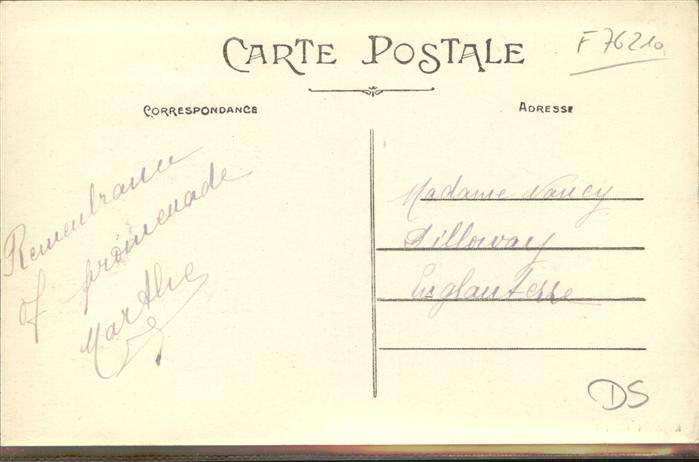 CARTE POSTALE
F 76210
CORRESPONDANCE
ADRESSE
Remenbrance
of promenade
Marthe
Madame Nancy
Dilloway
Englanterre
DS